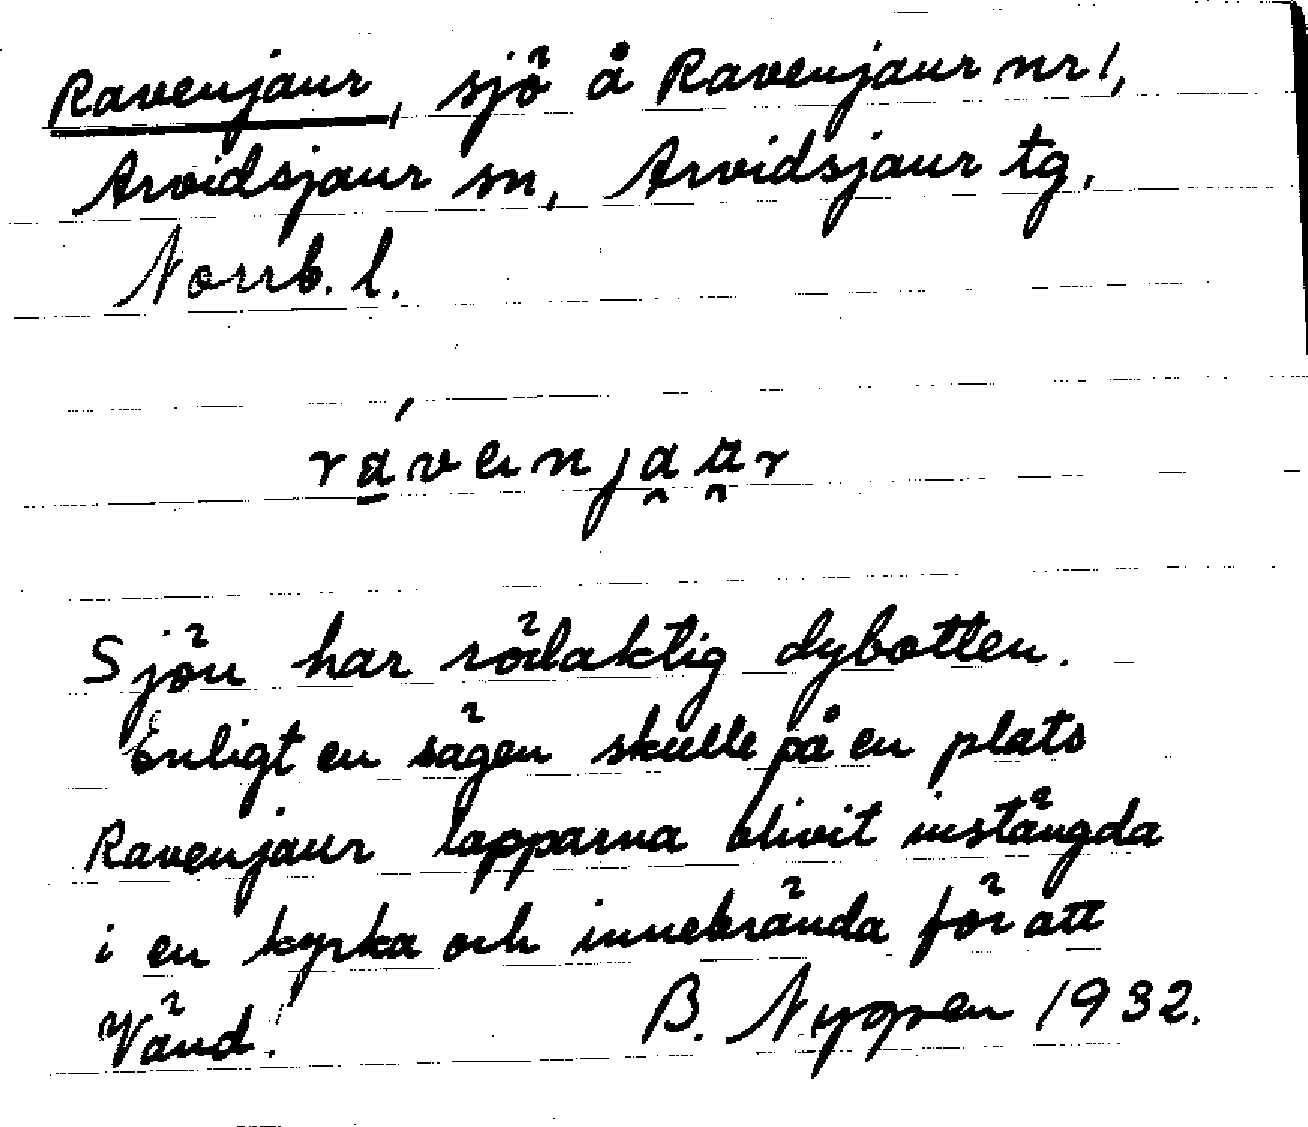 Ravenjaur, sjö å Ravenjaur nr 1,
Arvidsjaur sn, Arvidsjaur tg,
Norrb. l.
rávenjaur
Sjön har rödaktig dybotten.
Enligt en sägen skulle på en plats
Ravenjaur lapparna blivit instängda
i en kyrka och innebrända för att
Vänd! B. Nygren 1932.